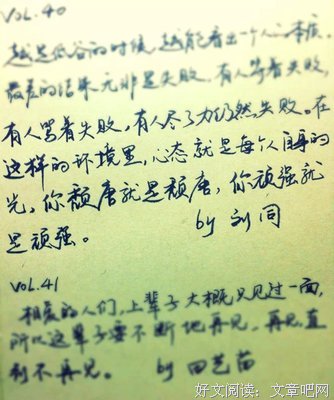 VOL.40
越是低谷的时候,越能看出一个人心本质。
最差的结果无非是失败,有人等着失败,
有人笑着失败,有人尽了力仍然失败。在
这样的环境里,心态就是每个人自身的
光,你颓唐就是颓唐,你顽强就
是顽强。 by 刘同
VOL.41
相爱的人们,上辈子大概只见过一面,
所以这辈子要不断地再见,再见,直
到不再见。 by 田艺苗
好文阅读:文章吧网